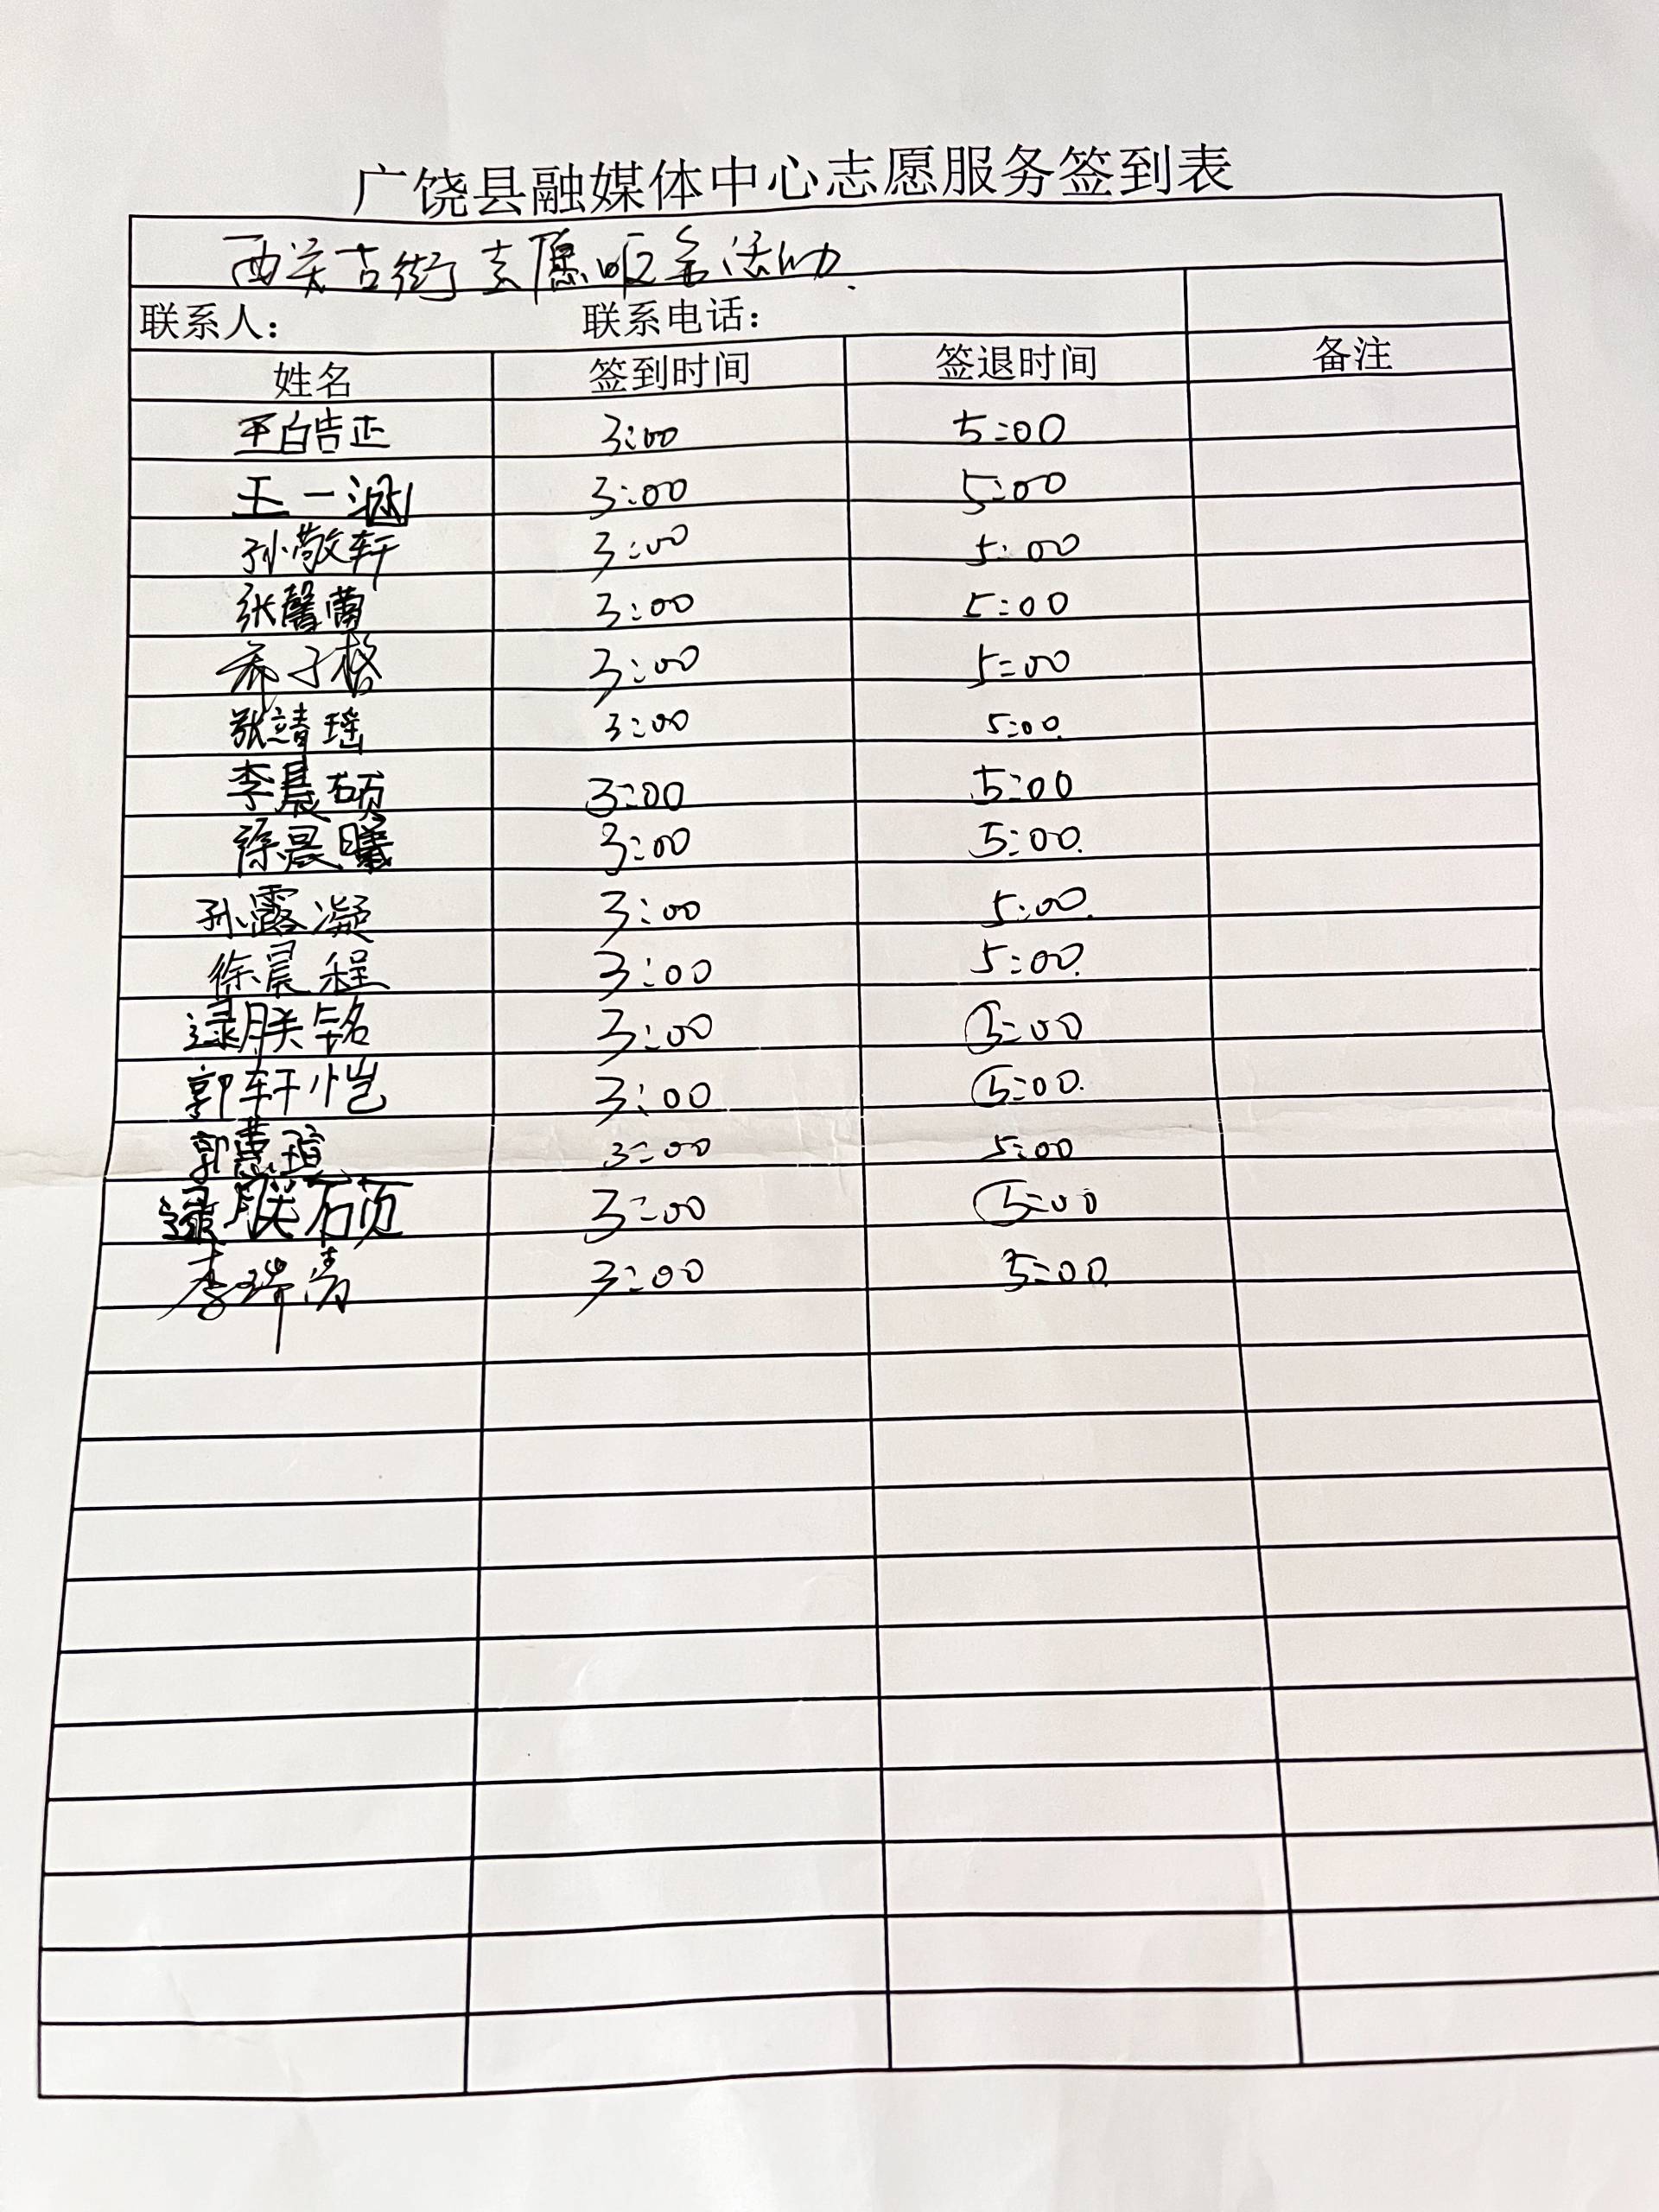 广饶县融媒体中心志愿服务签到表
西关古街志愿服务活动.
联系人: 联系电话:
姓名 签到时间 签退时间 备注
王皓正 3:00 5:00
王一涵 3:00 5:00
孙敬轩 3:00 5:00
张馨菌 3:00 5:00
子格 3:00 5:00
张靖瑶 3:00 5:00.
李晨硕 3:00 5:00
徐晨曦 3:00 5:00.
孙露凝 3:00 5:00.
徐晨程 3:00 5:00.
逯朕铭 3:00 5:00
郭轩恺 3:00 5:00.
郭惠瑄 3:00 5:00
逯朕硕 3:00 5:00
李瑞涛 3:00 5:00.